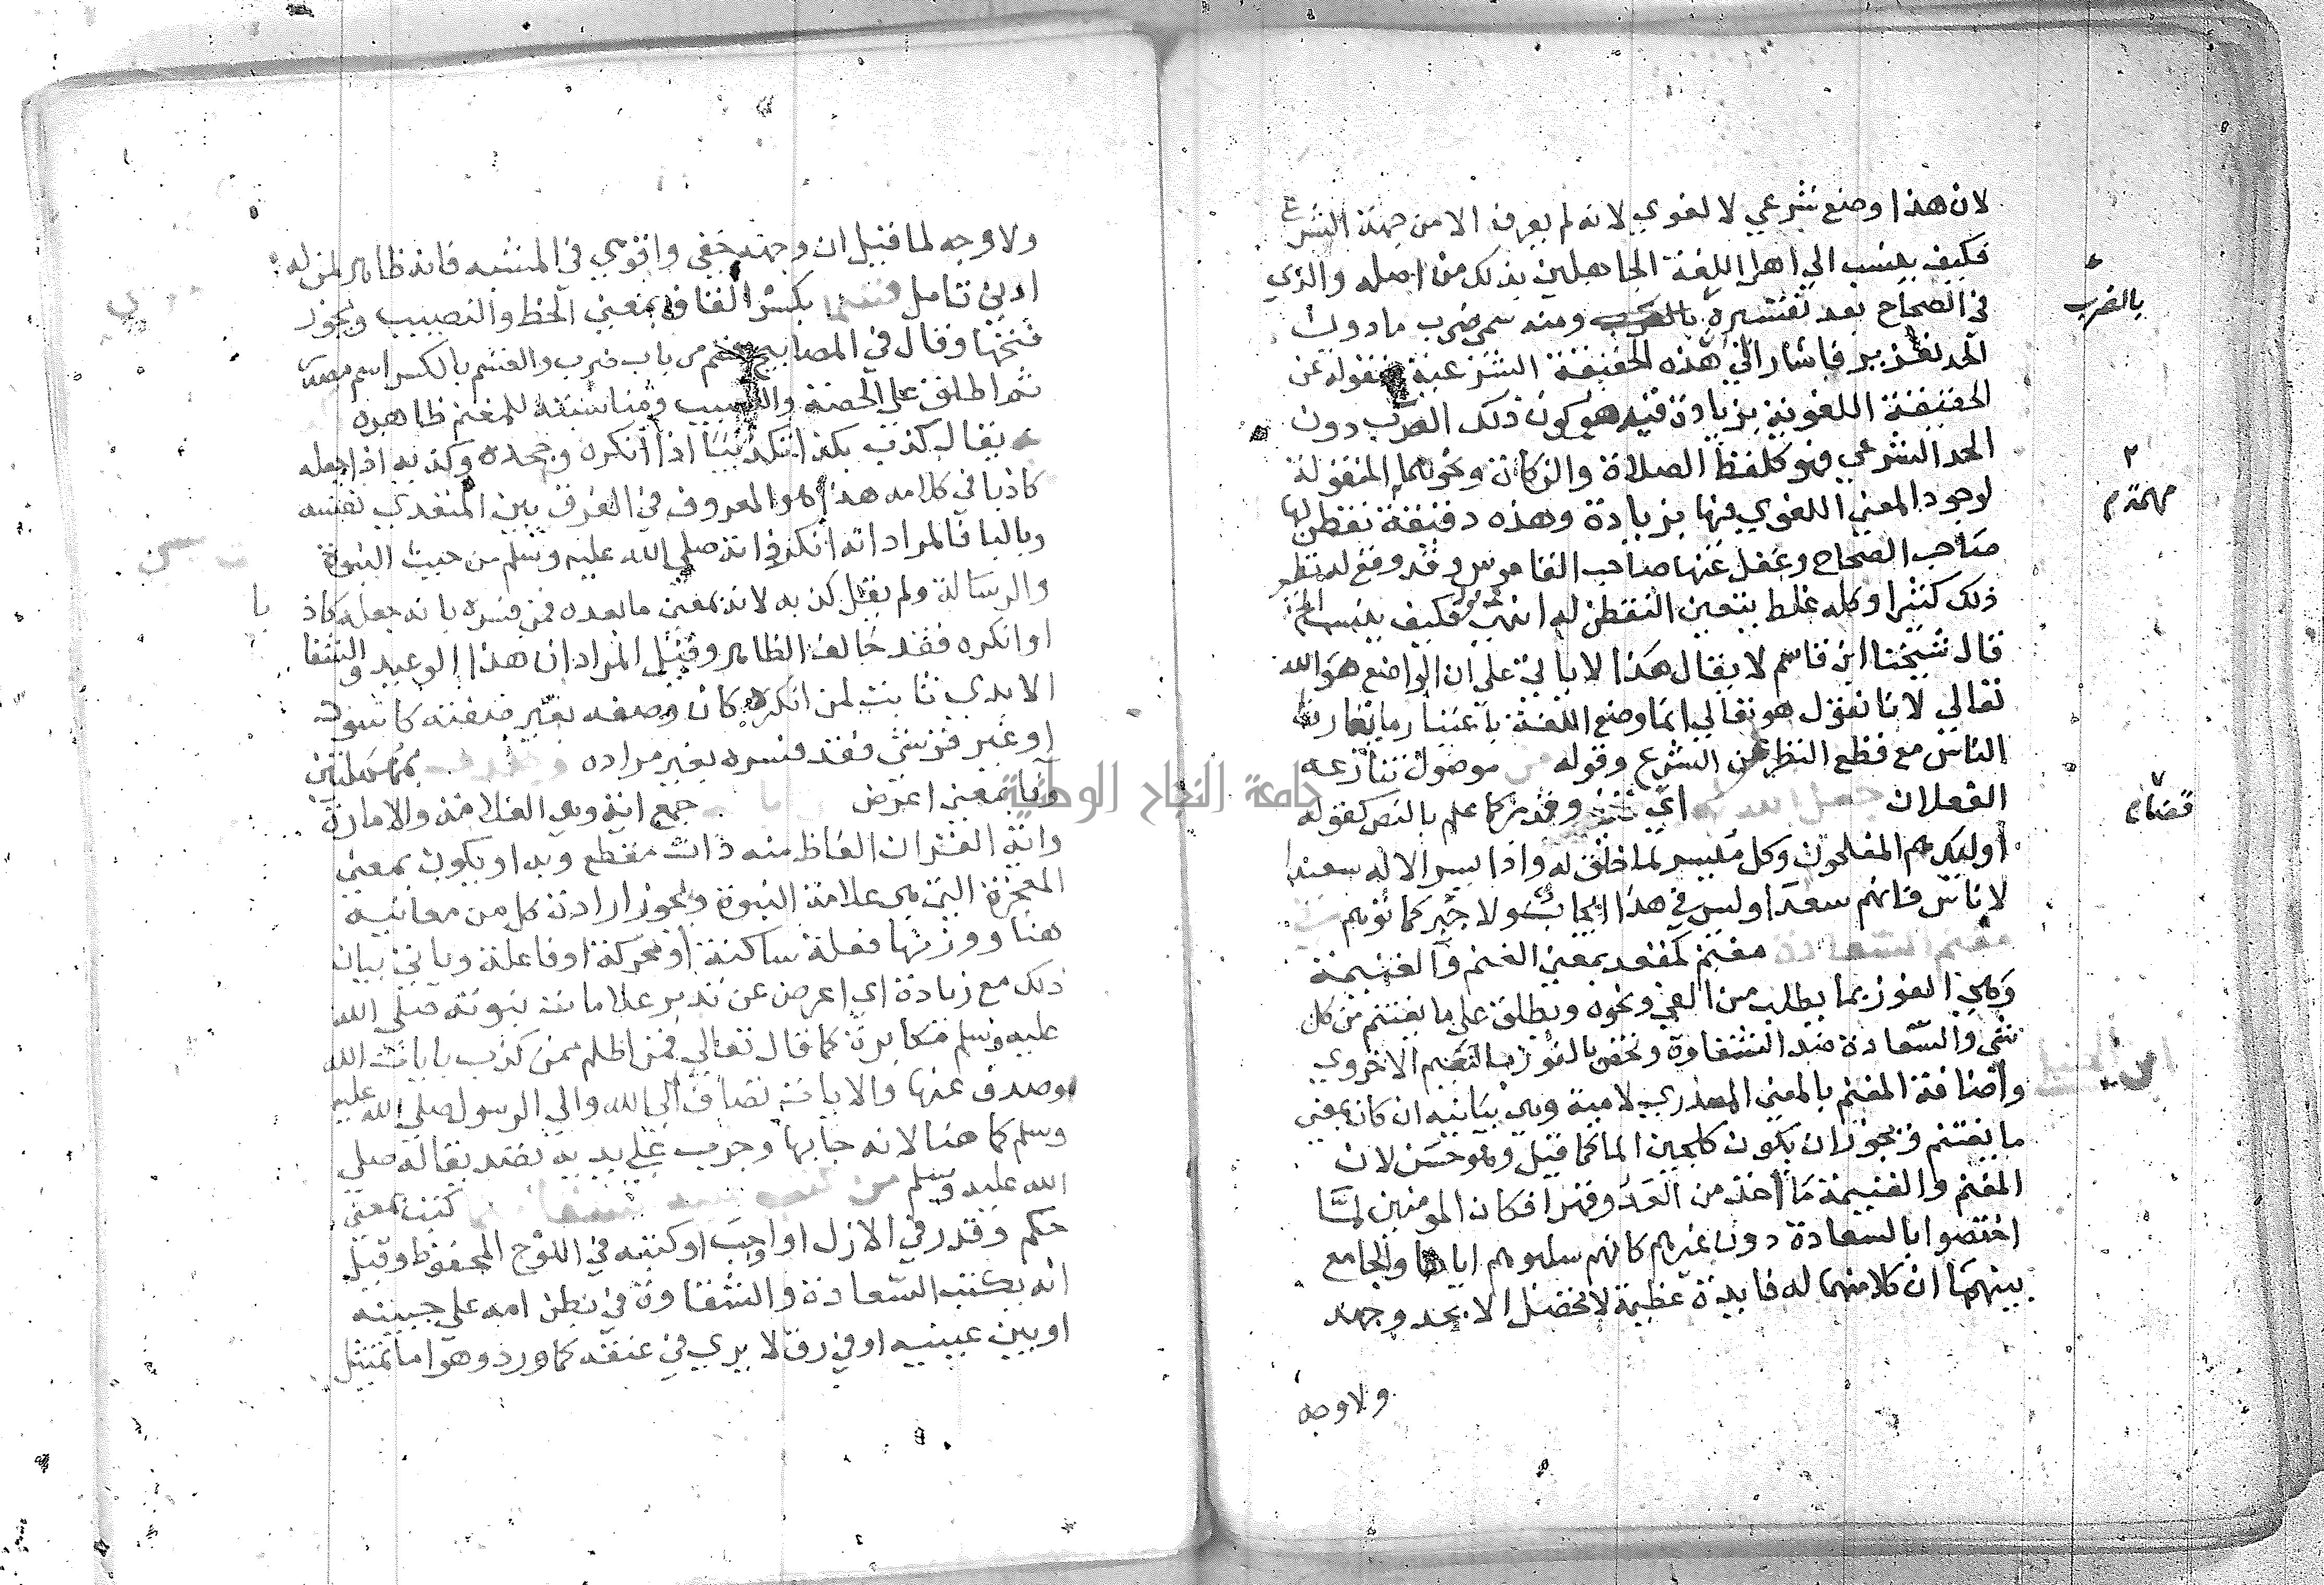 لان هذا وضع شرعي لا لغوي لانه لم يعرف الا من جهة الشرع
فكيف ينسب الي اهل اللغة الجاهلين بذلك من اصله والذي
في الصحاح بعد تفسيره بالضرب ومنه سمي ضرب ما دون
الحد تعزير فاشار الي ان هذه الحقيقة الشرعية منقولة عن
الحقيقة اللغوية بزيادة قيد هو كون ذلك الضرب دون
الحد الشرعي فهو كلفظ الصلاة والزكاة ونحوهما المنقولة
لوجود المعني اللغوي فيها بزيادة وهذه دقيقة تفطن لها
صاحب الصحاح وغفل عنها صاحب القاموس وقد وقع له نظير
ذلك كثيرا وكله غلط يتعين التفطن له انتهي فكيف ينسب الخ
قال شيخنا ابن قاسم لا يقال هذا لا ياتي علي ان الواضع هو الله
تعالي لانا نقول هو تعالي انما وضع اللغة باعتبار ما يتعارفه
الناس مع قطع النظر عن الشرع وقوله من موصول تنازعه
الفعلان جعل الله له اي وقدم كما علم بالنص كقوله
اوليك هم المفلحون وكل ميسر لما خلق له واذا يسر الاله سعيدا
لاناس فانهم سعدا وليس في هذا ولا جبر كما توهم
مغنم السعادة مغنم كمقعد بمعني الغنم والغنيمة
وهي الفوز بما يطلب من الفي ونحوه ويطلق علي ما يغتنم من كل
شي والسعادة ضد الشقاوة وتختص بالفوز بالنعيم الاخروي
واضافة المغنم بالمعني المصدري لامية وهي بيانية ان كان بمعني
ما يغتنم ويجوز ان يكون كلجين الما كما قيل وهو حسن لان
المغنم والغنيمة ما اخذ من العدو قهرا فكان المومنين لما
اختصوا بالسعادة دون غيرهم كانهم سلبوهم اياها والجامع
بينهما ان كلا منهما له فايدة عظيمة لا تحصل الا بجد وجهد
ولا وجه
بالضرب
مهمة
قضاه
ولا وجه لما قيل ان وجهه خفي واقوي في المشبه فانه ظاهر لمن له
ادني تامل قسما بكسر القاف بمعني الحظ والنصيب ويجوز
فتحها وقال في المصابيح قسم من باب ضرب والقسم بالكسر اسم منه
ثم اطلق علي الحصة والنصيب ومناسبته للمغنم ظاهره
يقال كذب بكذا تكذيبا اذا انكره وجحده وكذبه اذا جعله
كاذبا في كلامه هذا هو المعروف في الفرق بين المتعدي بنفسه
وبالبا فالمراد انه انكر ذاته صلي الله عليه وسلم من حيث النبوة
والرسالة ولم يقل كذبه لانه بمعني ما بعده فمن فسره بانه جعله كاذبا
او انكره فقد خالف الظاهر وقيل المراد ان هذا الوعيد والشقا
الابدي ثابت لمن انكره كان وصفه بغير صفته كاسود
او غير قرشي فقد فسره بغير مراده بمهملتين
وفا بمعني اعرض جمع اية وهي العلامة والامارة
واية القران الفاظ منه ذات مقطع وبدا ويكون بمعني
المعجزة التي هي علامة النبوة ويجوز ارادة كل من معانيه
هنا ووزنها فعلة ساكنة او محركة او فاعلة وياتي بيان
ذلك مع زيادة اي اعرض عن تدبر علامات نبوته صلي الله
عليه وسلم مكابرة كما قال تعالي فمن اظلم ممن كذب بايات الله
وصدف عنها والايات تضاف الي الله والي الرسول صلي الله عليه
وسلم كما هنا لانه جا بها وجرت علي يديه تصديقا له صلي
الله عليه وسلم كتب بمعني
حكم وقدر في الازل او اوجب او كتبه في اللوح المحفوظ وقيل
انه يكتب السعادة والشقاوة في بطن امه علي جبينه
او بين عينيه او في رق لا يري في عنقه كما ورد وهو اما تمثيل
جامعة النجاح الوطنية